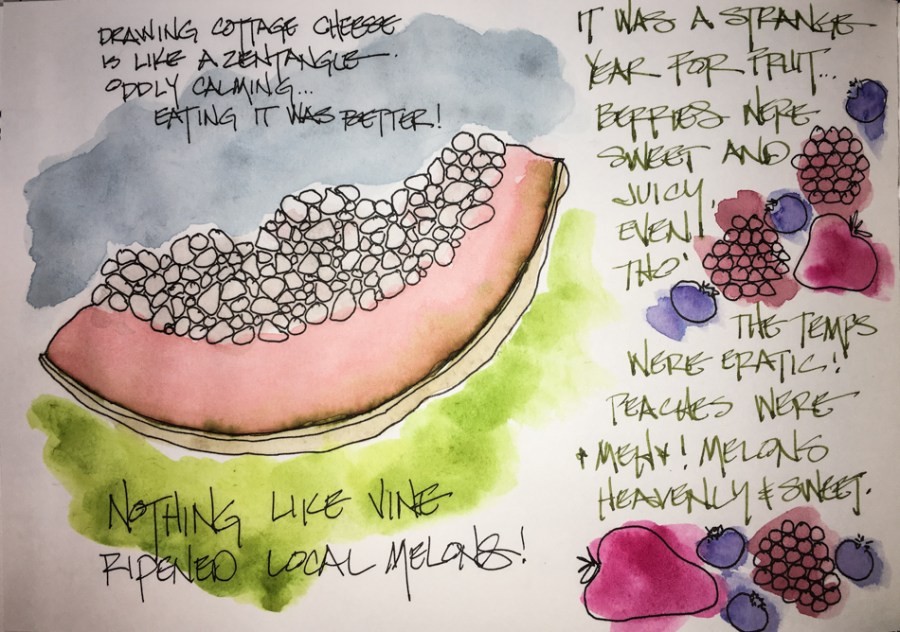 DRAWING COTTAGE CHEESE
IS LIKE A ZENTANGLE.
ODDLY CALMING...
EATING IT WAS BETTER!
NOTHING LIKE VINE
RIPENED LOCAL MELONS!
IT WAS A STRANGE
YEAR FOR FRUIT...
BERRIES WERE
SWEET AND
JUICY,
EVEN!
THO'
THE TEMPS
WERE ERATIC!
PEACHES WERE
*MEH*! MELONS
HEAVENLY & SWEET.